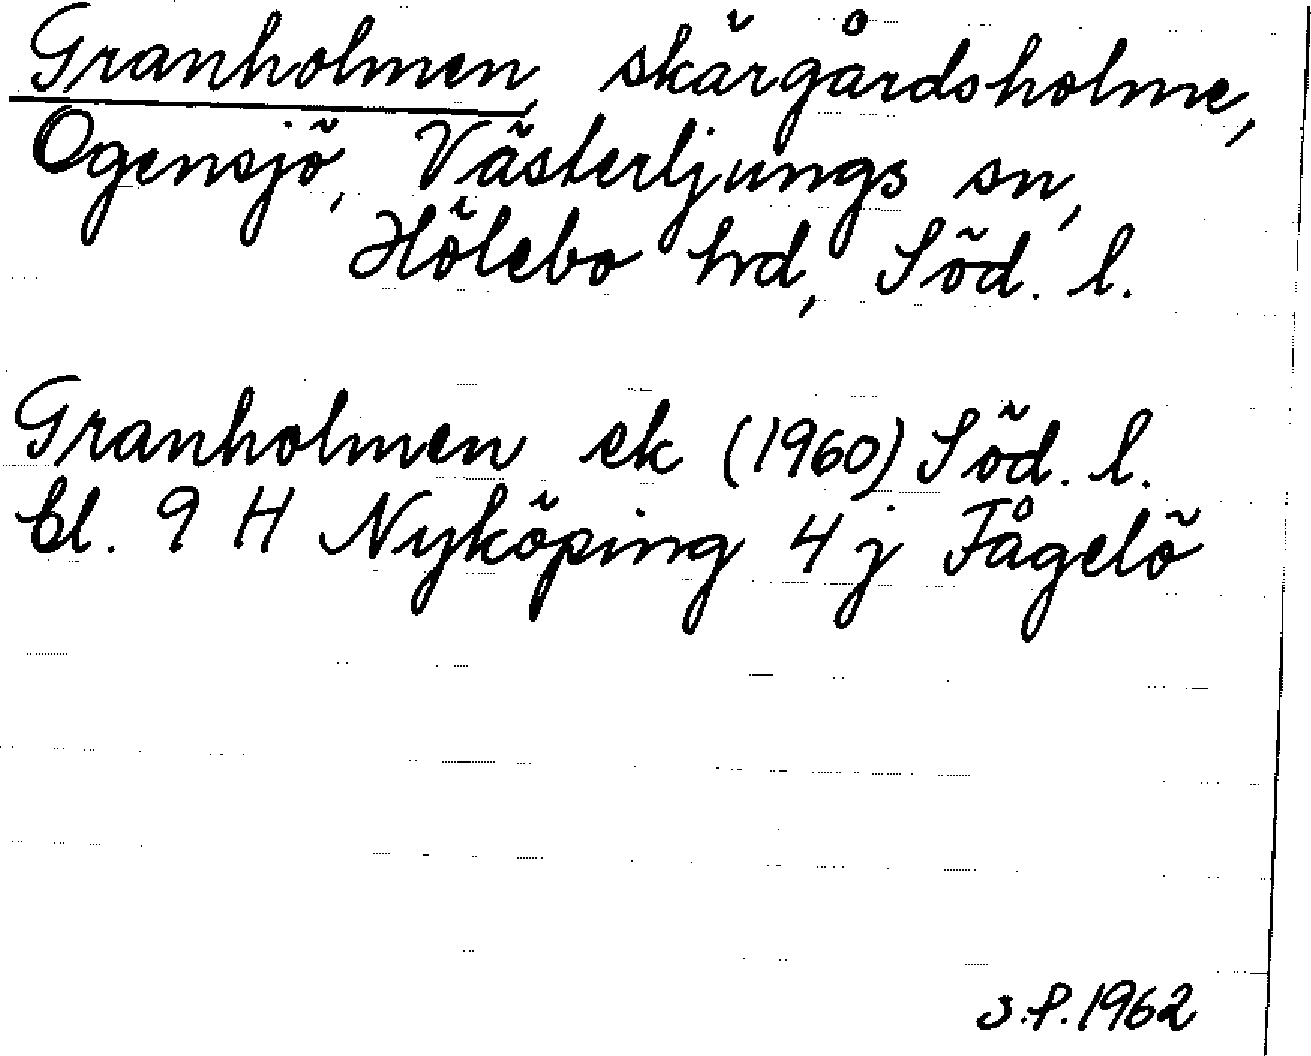 Granholmen, skärgårdsholme,
Ogensjö, Västerljungs sn,
Hölebo hrd, Söd. l.
Granholmen ek (1960) Söd. l.
bl. 9 H Nyköping 4 j Fågelö
S.P. 1962